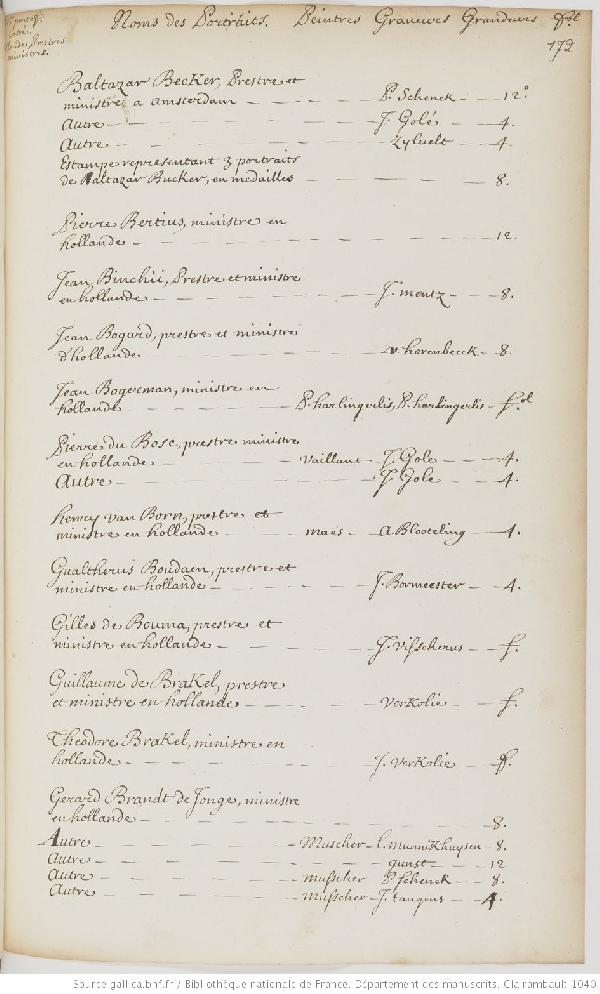 Noms des Portraits. Peintres Graveurs Grandeurs
172
Baltazar Becker, Prestre et
ministre a amsterdam — P. Schenck — 12°
Autre — J. Golé — 4.
Autre — Zyluelt — 4.
Estampe representant 3 portraits
de Baltazar Bucker, en medailles — 8.
Pierre Bertius, ministre en
hollande — 12.
Jean Binchii, Prestre et ministre
en hollande — J. mentz — 8.
Jean Bogard, prestre et ministre
d'hollande — v. horenbeeck — 8.
Jean Bogerman, ministre en
hollande — P. harlingelis, P. harlingelis — f.ol
Pierre du Bosc, prestre ministre
en hollande — Vaillant — J. Gole — 4.
Autre — J. Gole — 4.
henry van Born, prestre et
ministre en hollande — maes — A Blooteling — 4.
Gualtherus Boudaen, prestre et
ministre en hollande — J. Bormeester — 4.
Gilles de Bouma, prestre et
ministre en hollande — J. Visscherus — f.
Guillaume de Brakel, prestre
et ministre en hollande — Verkolie — f.
Theodore Brakel, ministre en
hollande — J. Verkolie — f.
Gerard Brandt de Jonge, ministre
en hollande — 8.
Autre — Muscher — C. Munnikhuysen — 8.
Autre — gunst — 12
Autre — Musscher P. Schenck — 8.
Autre — Musscher — J. tangens — 4.
Source gallica.bnf.fr / Bibliothèque nationale de France. Département des manuscrits. Clairambault 1040